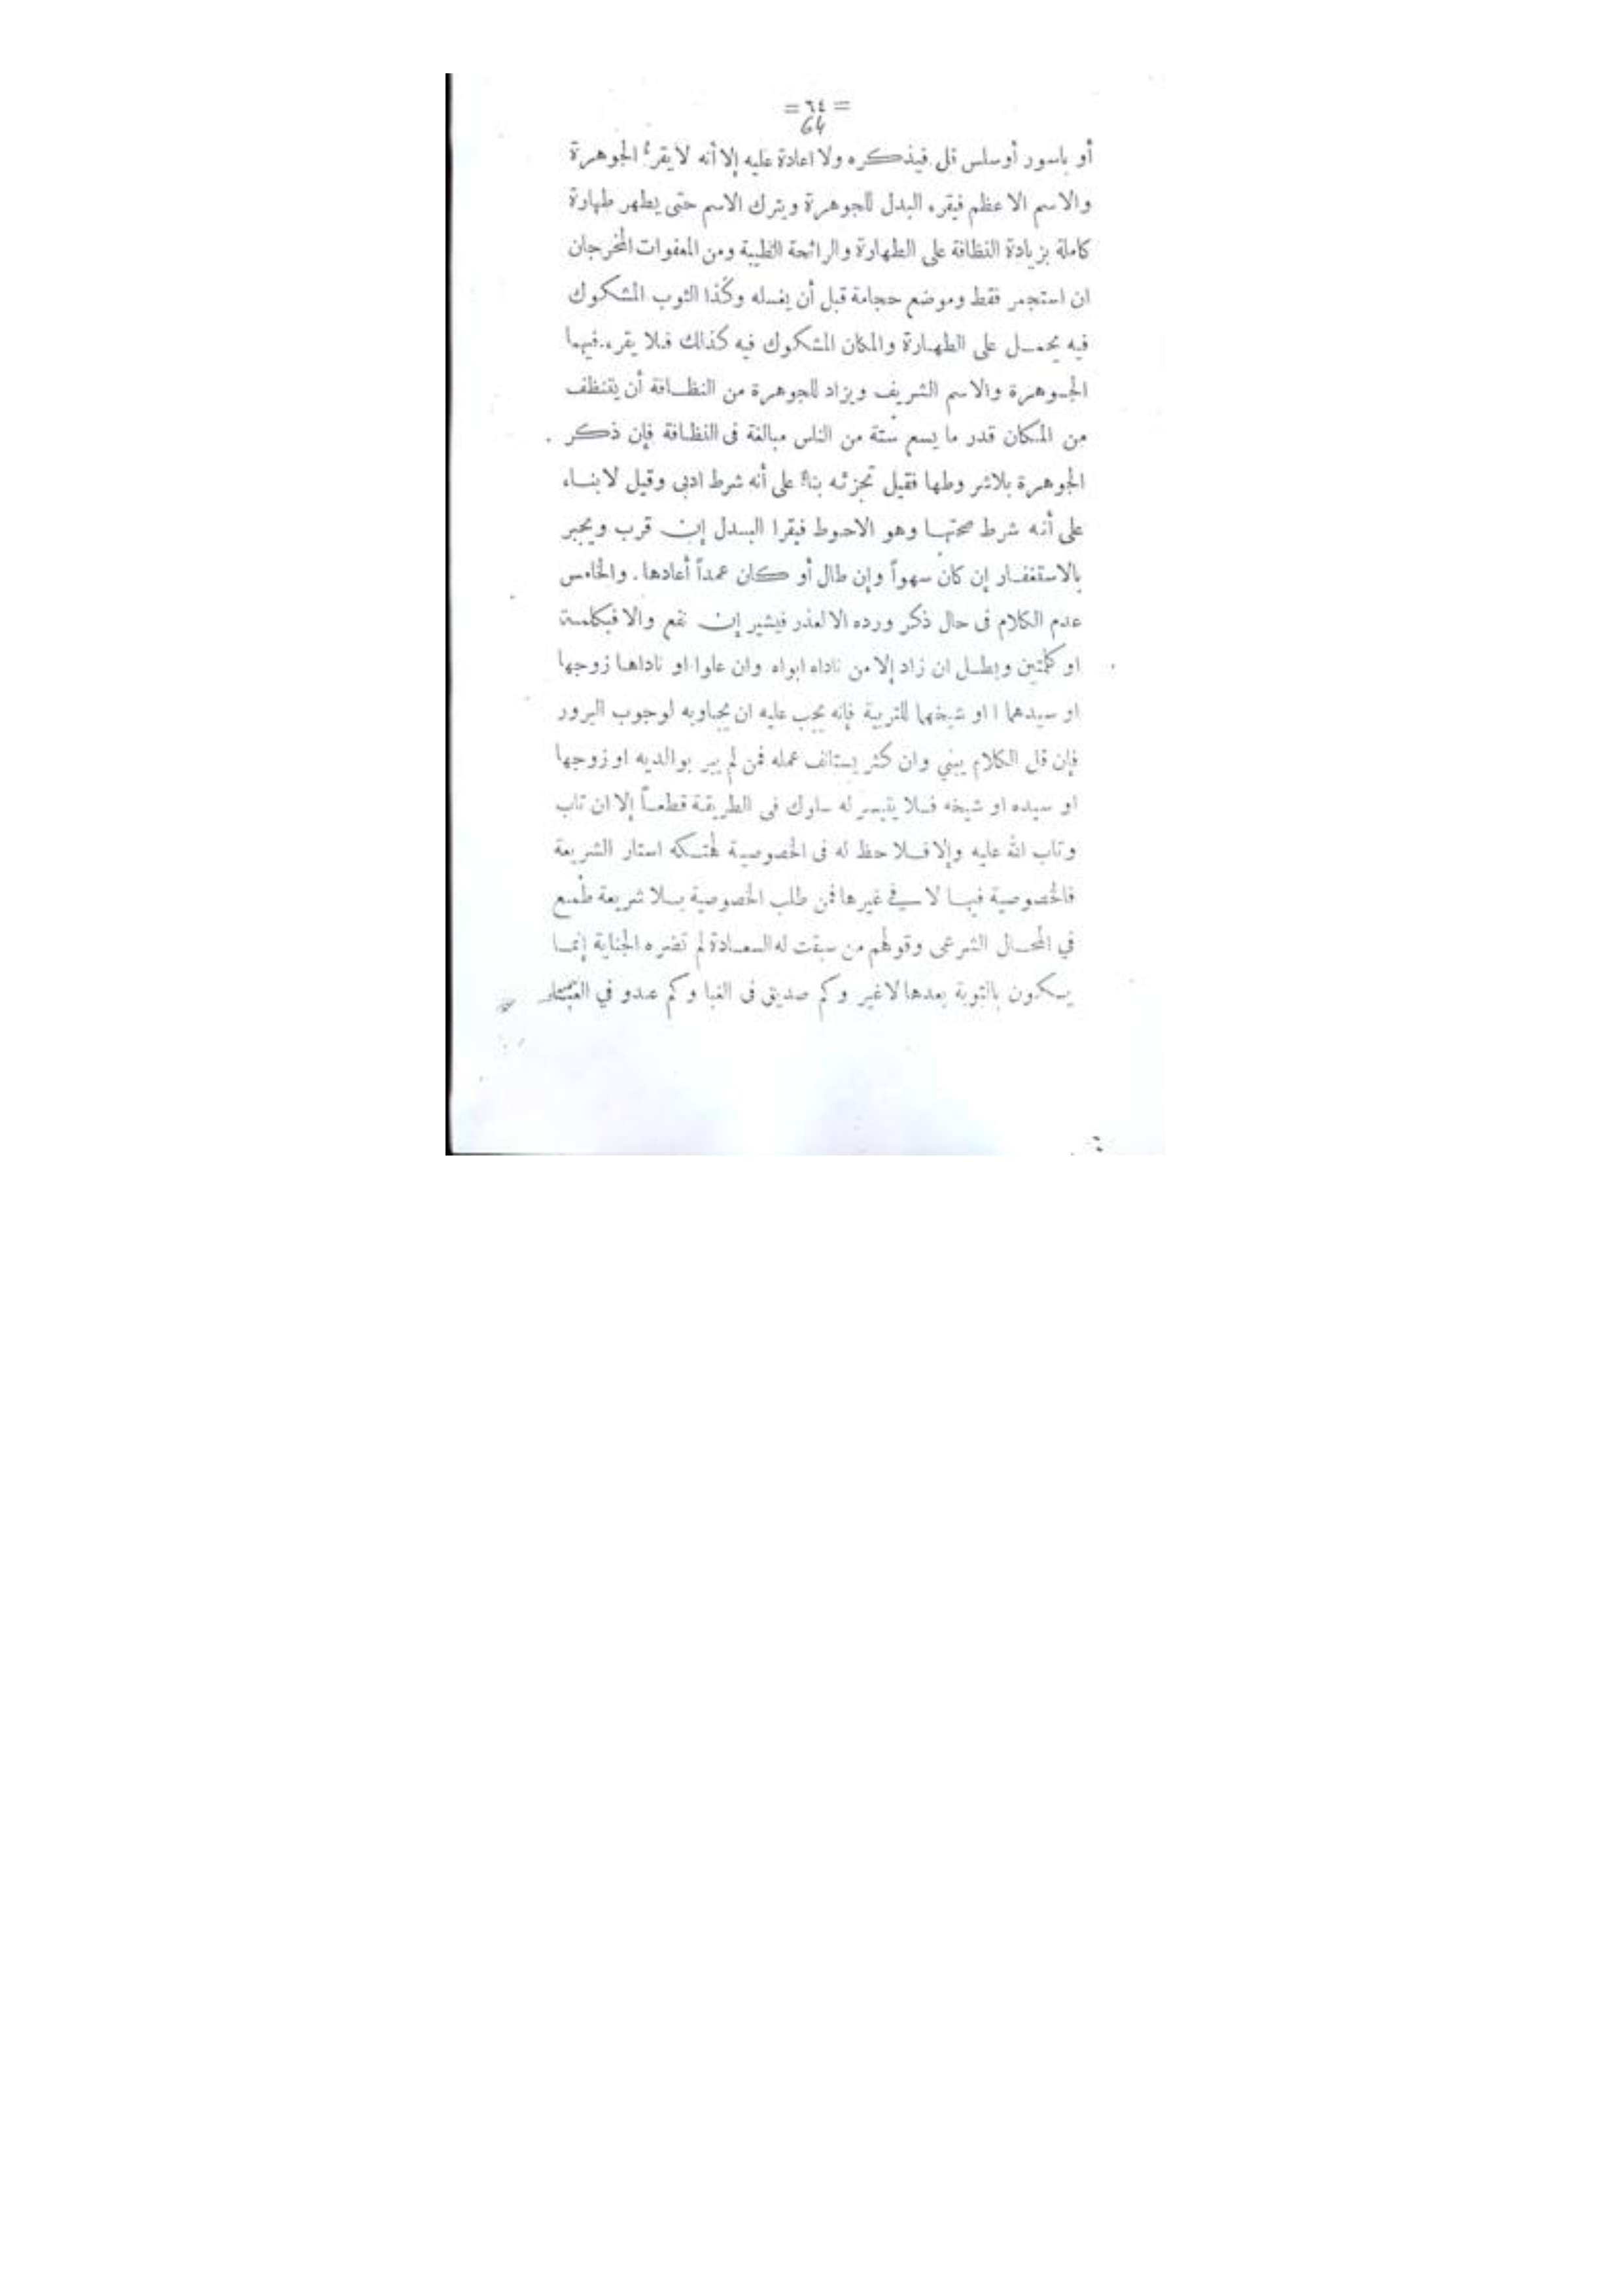 = ٦٤ =
64
أو باسور أوسلس قل فيذكره ولا اعادة عليه إلا أنه لا يقرءُ الجوهرة
والاسم الاعظم فيقرء البدل للجوهرة ويترك الاسم حتى يطهر طهارة
كاملة بزيادة النظافة على الطهارة والرائحة الطيبة ومن المعفوات المخرجان
ان استجمر فقط وموضع حجامة قبل أن يغسله وكذا الثوب المشكوك
فيه يحمل على الطهارة والمكان المشكوك فيه كذالك فلا يقرء فيهما
الجوهرة والاسم الشريف ويزاد للجوهرة من النظافة أن يتنظف
من المكان قدر ما يسع ستة من الناس مبالغة فى النظافة فإن ذكر
الجوهرة بلاشروطها فقيل تجزئه بناءً على أنه شرط ادبى وقيل لا بناء
على أنه شرط صحتها وهو الاحوط فيقرا البدل إن قرب ويجبر
بالاستغفار إن كان سهواً وإن طال أو كان عمداً أعادها. والخامس
عدم الكلام فى حال ذكر ورده الا لعذر فيشير إن نفع والا فبكلمة
او كلمتين وبطل ان زاد إلا من ناداه ابواه وان علوا او ناداها زوجها
او سيدهما ا او شيخهما للتربية فإنه يجب عليه ان يجاوبه لوجوب البرور
فإن قل الكلام يبني وان كثر يستانف عمله فمن لم يبر بوالديه او زوجها
او سيده او شيخه فلا يتيسر له سلوك فى الطريقة قطعاً إلا ان تاب
وتاب الله عليه وإلا فلا حظ له فى الخصوصية لهتكه استار الشريعة
فالخصوصية فيها لا في غيرها فمن طلب الخصوصية بلا شريعة طمع
في المحال الشرعى وقولهم من سبقت له السعادة لم تضره الجناية إنما
يكون بالتوبة بعدها لاغير وكم صديق فى الغبا وكم عدو في